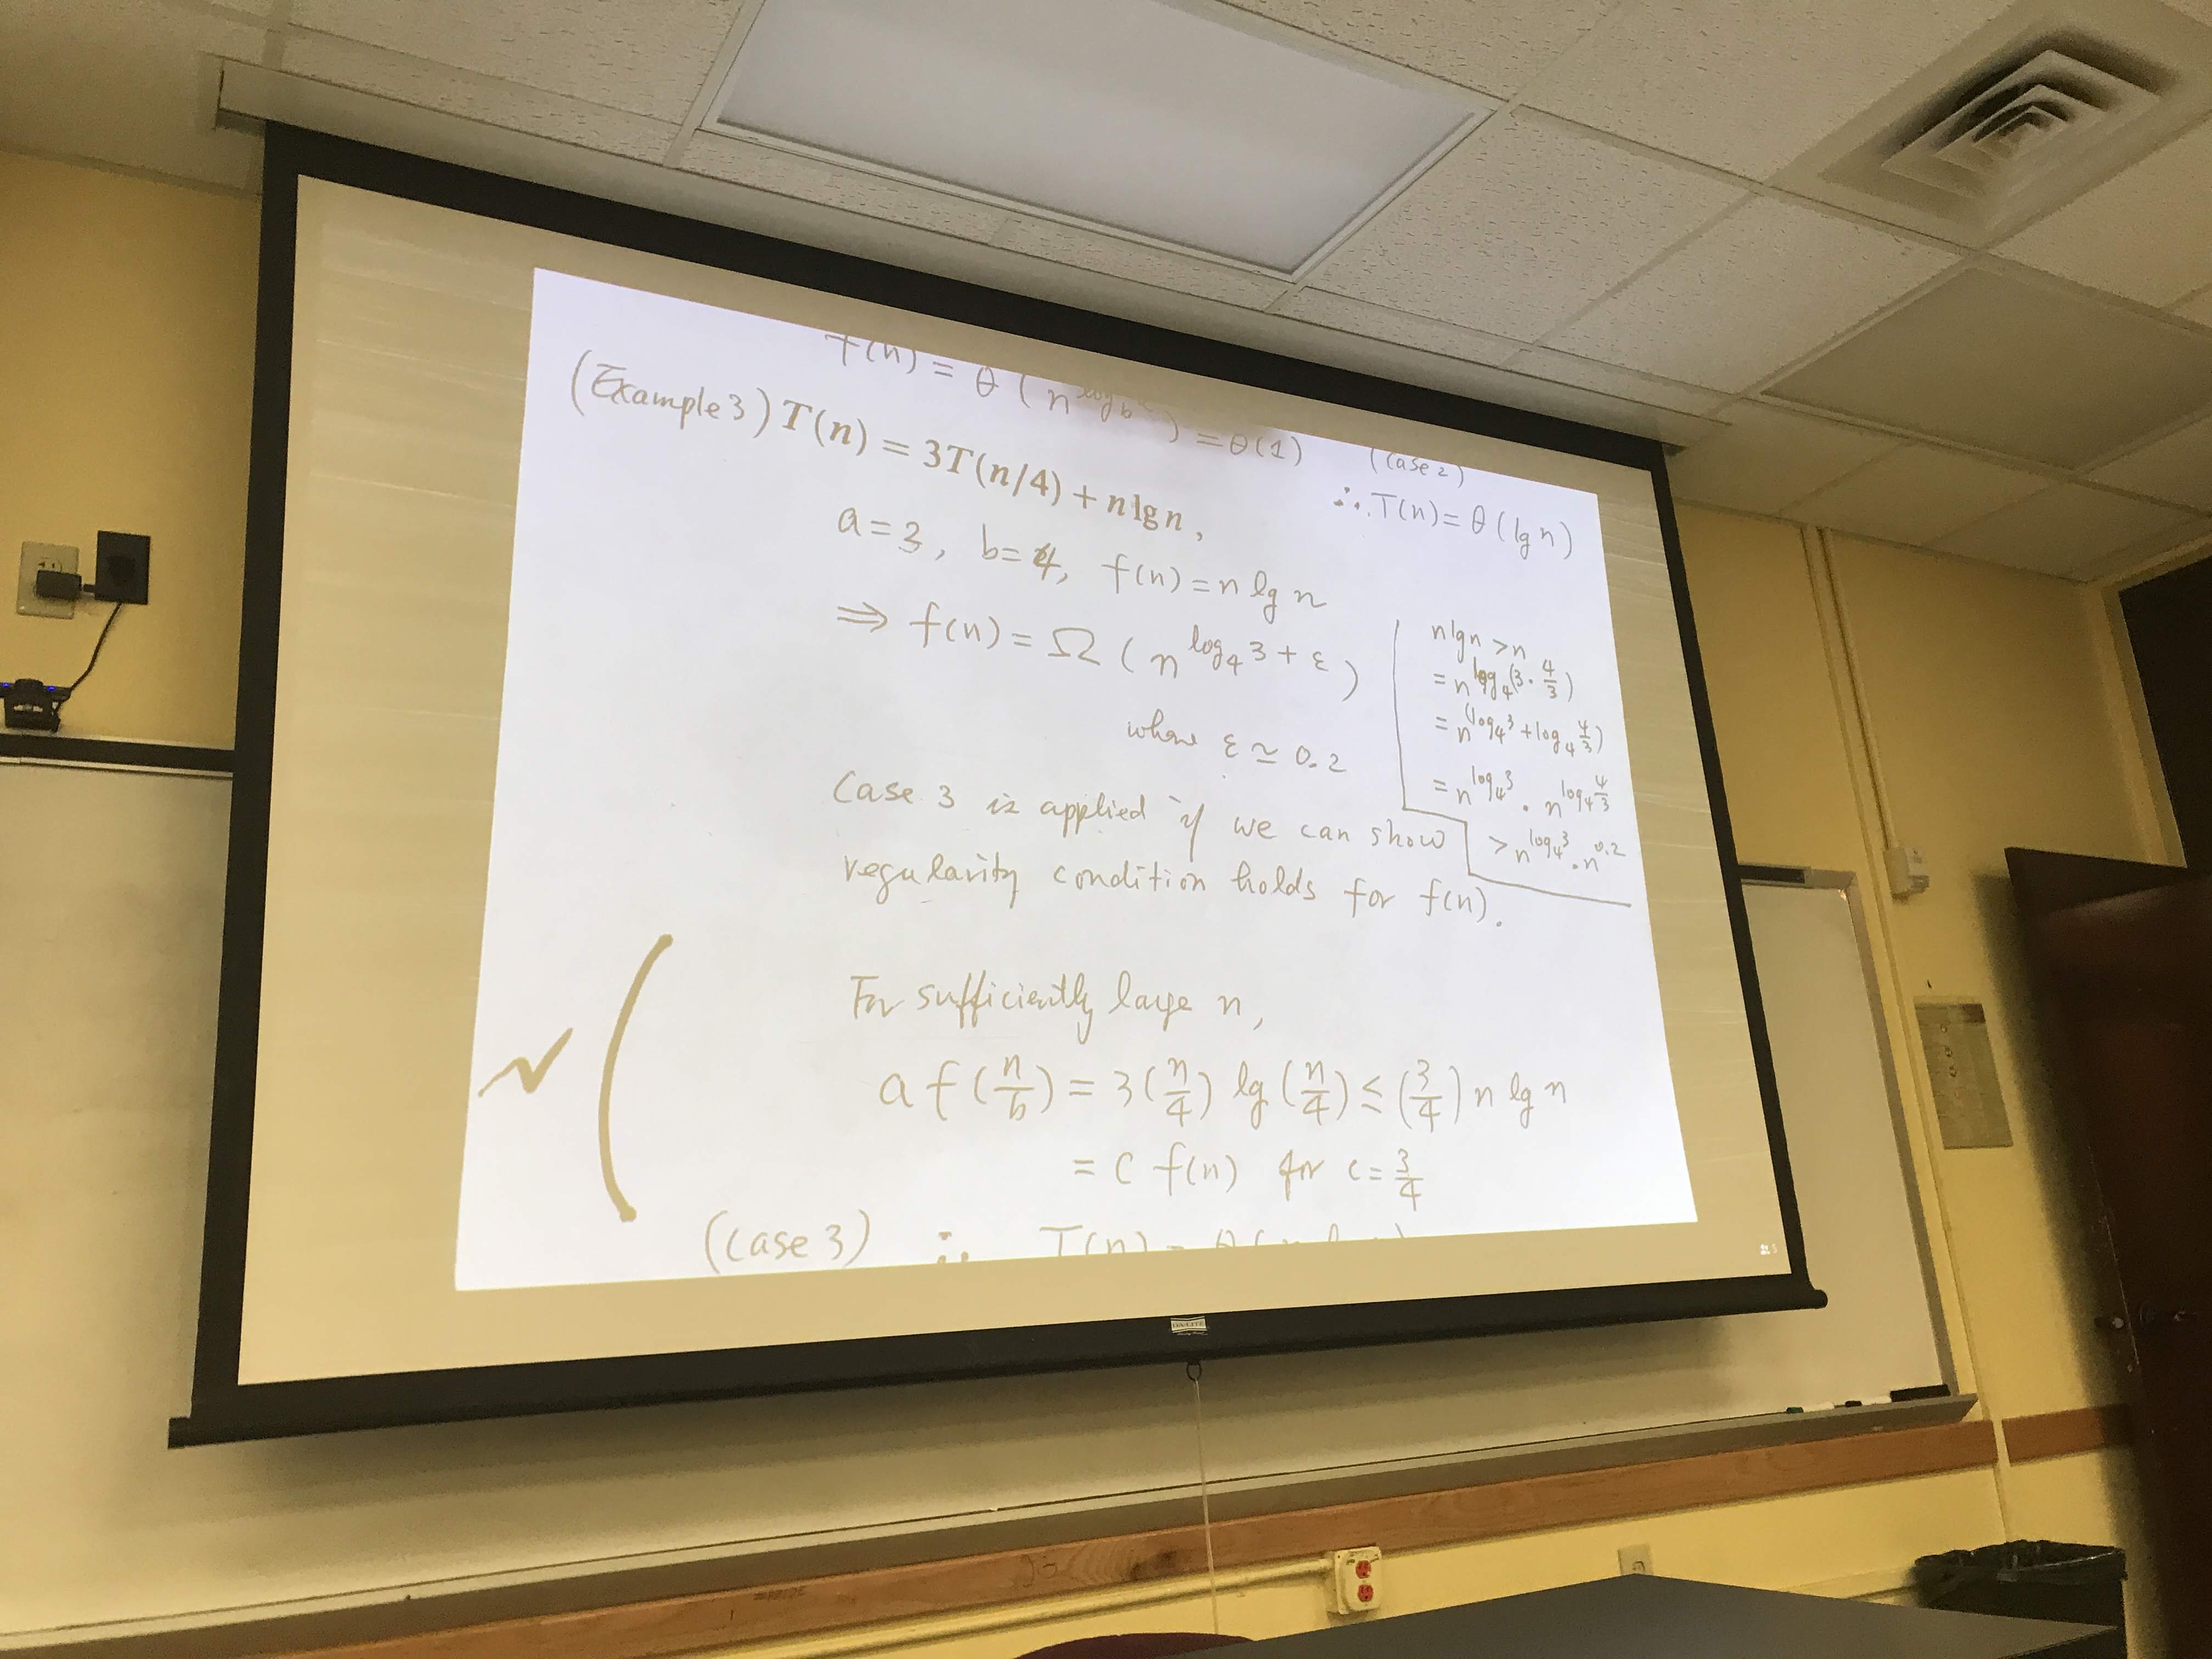 f(n) = θ ( n^log_b ) = θ(1) (Case 2)
∴ T(n) = θ (lg n)
(Example 3) T(n) = 3T(n/4) + n lg n ,
a = 3, b = 4, f(n) = n lg n
⇒ f(n) = Ω ( n^log_4 3 + ε )
where ε ≃ 0.2
n lg n > n
= n^log_4(3 · 4/3)
= n^(log_4 3 + log_4 4/3)
= n^log_4 3 · n^log_4 4/3
> n^log_4 3 · n^0.2
Case 3 is applied if we can show
regularity condition holds for f(n).
For sufficiently large n,
a f(n/b) = 3(n/4) lg (n/4) ≤ (3/4) n lg n
= c f(n) for c = 3/4
(Case 3) ∴ T(n) = θ (
DA-LITE